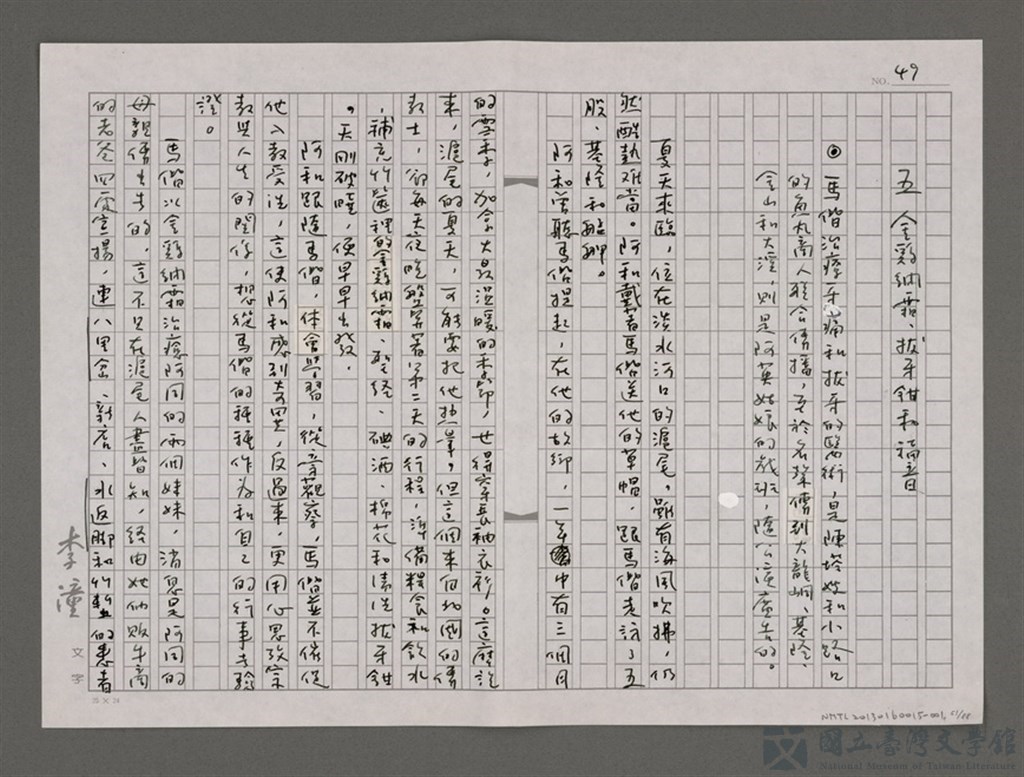 NO. 49
五 金雞納霜、拔牙鉗和福音
◎馬偕治療牙痛和拔牙的醫術,是陳塔嫂和小路口
的魚丸商人聯合傳播,至於名揚傳到大龍峒、基隆、
金山和大溪,則是阿英姑娘的戲班,隨公演廣告的。
夏天來臨,位在淡水河口的滬尾,雖有海風吹拂,仍
然酷熱難當。阿和戴著馬偕送他的草帽,跟馬偕走訪了五
股、基隆和艋舺。
阿和曾聽馬偕提起,在他的故鄉,一年中有三個月
的雪季,加拿大最溫暖的季節,也得穿長袖衣衫。這麼說
來,滬尾的夏天,可能要把他熱暈,但這個來自北國的傳
教士,卻每天在吃盤算著第二天的行程,準備糧食和飲水
,補充竹簍裡的金雞納霜、聖經、碘酒、棉花和清洗拔牙鉗
。天剛破曉,便早早出發。
阿和跟隨馬偕,體會學習,從旁觀察,馬偕並不催促
他入教受洗,這使阿和感到奇異,反過來,更用心思攷宗
教與人生的關係,想從馬偕的種種作為和自己的行事去驗
證。
馬偕以金雞納霜治癒阿同的兩個妹妹,消息是阿同的
母親傳出去的,這不只在滬尾人盡皆知,經由她的販牛商
的老爸四處宣揚,連八里坌、新店、水返腳和竹塹的患者
李潼
文字
25 × 24
NMTL20130160015-001, 51/88
國立臺灣文學館
National Museum of Taiwan Literature